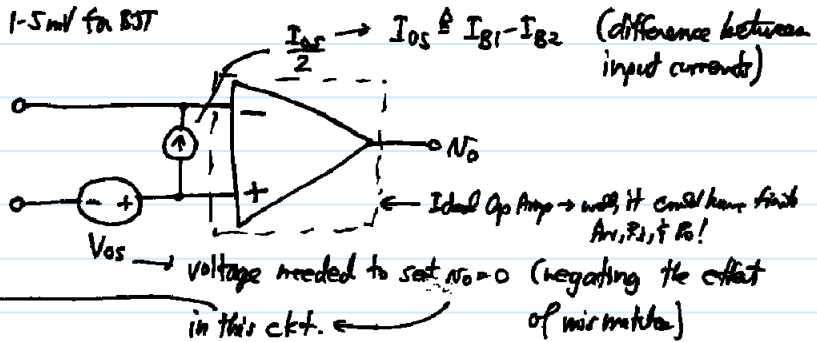 1-5mV for BJT
I_OS/2 → I_OS ≜ I_B1 - I_B2 (difference between
input currents)
−
+
v_o
← Ideal Op Amp → well, it could have finite
Av, Ri, & Ro!
- +
V_OS → voltage needed to set v_o=0 (negating the effect
in this ckt. ← of mismatches)